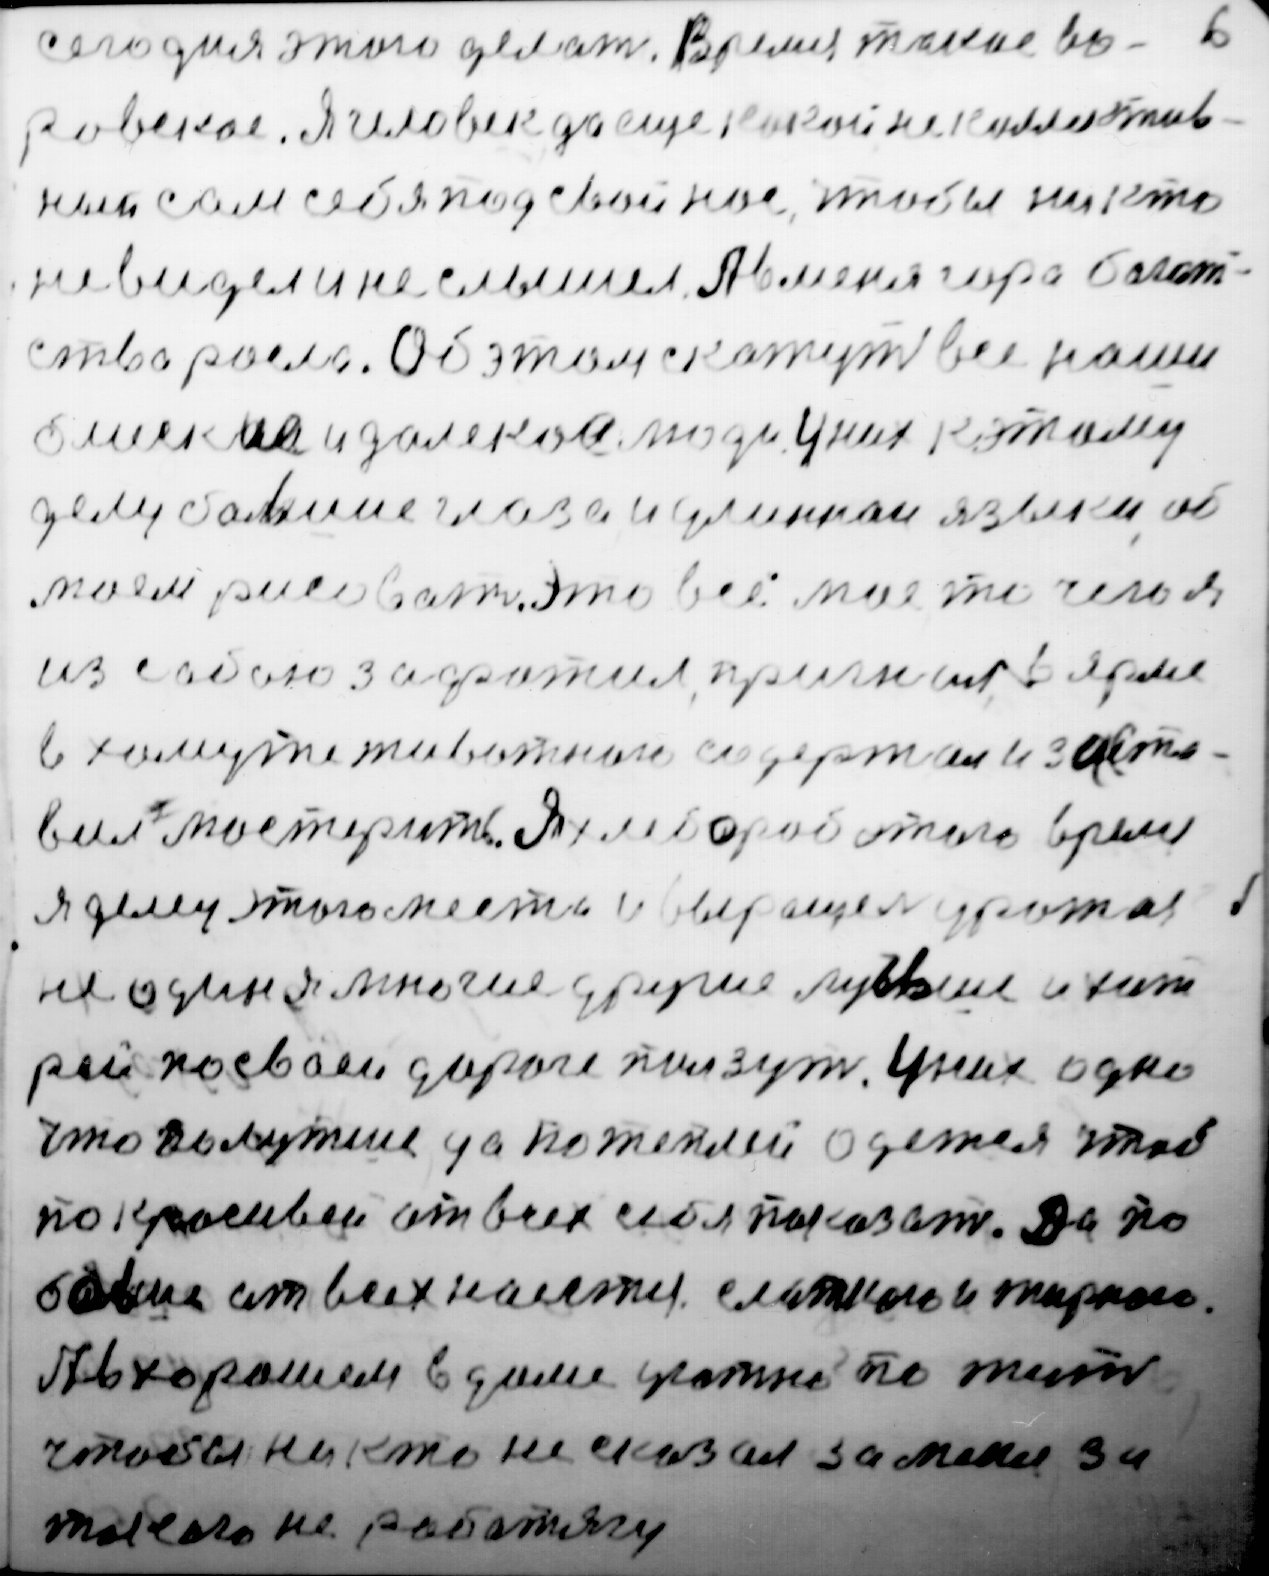 сегодня этого делат. Время такое во- 6
ровское. Я человек да еще какой не коллектив-
ный сам себя под свой нос, чтобы ни кто
не видел и не слышел. А в меня гора богат-
ства росла. Об этом скажут все наши
блиские и далекое люди. У них к этому
делу большие глаза и длиннаи языки, об
моем рисоват. Это всё мое то чего я
из собою зафротил, причнал, в ярме
в хомуте животного содержал и заста-
вил мостерить. Я хлебороб этого время
я делец этого места и выращел урожая
не один я многие другие лутьшие и хит
рей по своей дороге ползут. У них одно
что полутше да потеплей одежея чтоб
по красивей от всех себя показат. Да по
больше от всех наестся слаткого и жирного.
А в хорошем в доме уютно по жит
чтобы ни кто не сказал за мене за
такого не работягу